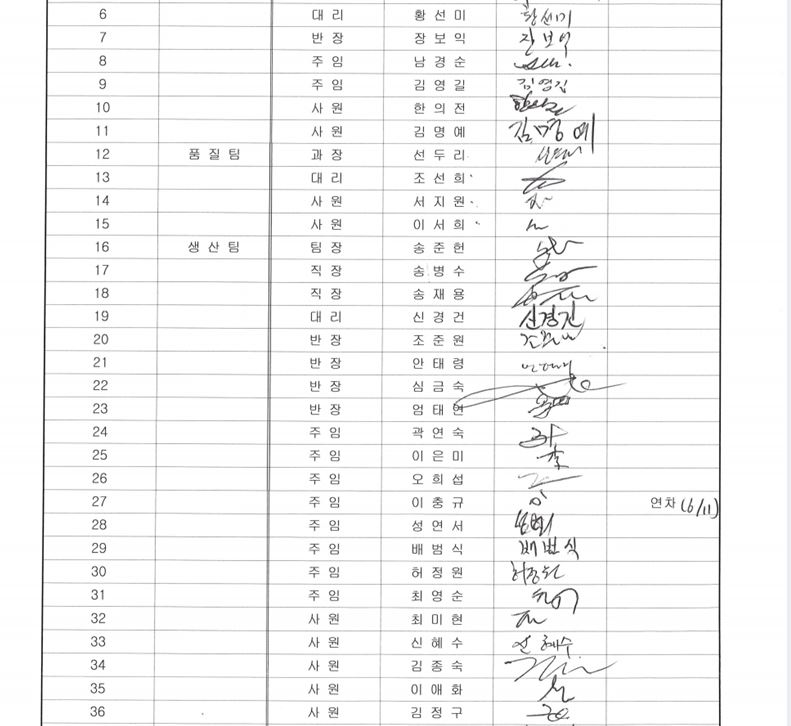 6 대리 황선미 황선미
7 반장 장보익 장보익
8 주임 남경순
9 주임 김영길 김영길
10 사원 한의전
11 사원 김명예 김명예
12 품질팀 과장 선두리
13 대리 조선희
14 사원 서지원
15 사원 이서희
16 생산팀 팀장 송준헌
17 직장 송병수
18 직장 송재용
19 대리 신경건 신경건
20 반장 조준원
21 반장 안태령
22 반장 심금숙
23 반장 엄태연
24 주임 곽연숙
25 주임 이은미
26 주임 오희섭
27 주임 이충규 연차(6/11)
28 주임 성연서
29 주임 배범식 배범식
30 주임 허정원 허정원
31 주임 최영순
32 사원 최미현
33 사원 신혜수 신혜수
34 사원 김종숙
35 사원 이애화
36 사원 김정구